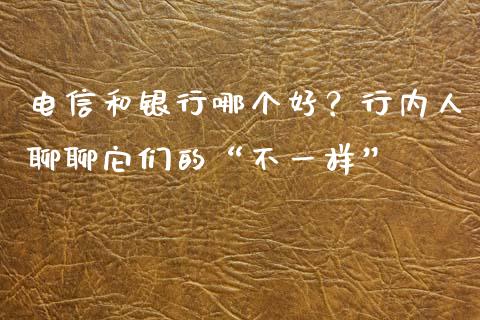 电信和银行哪个好？行内人
聊聊它们的“不一样”